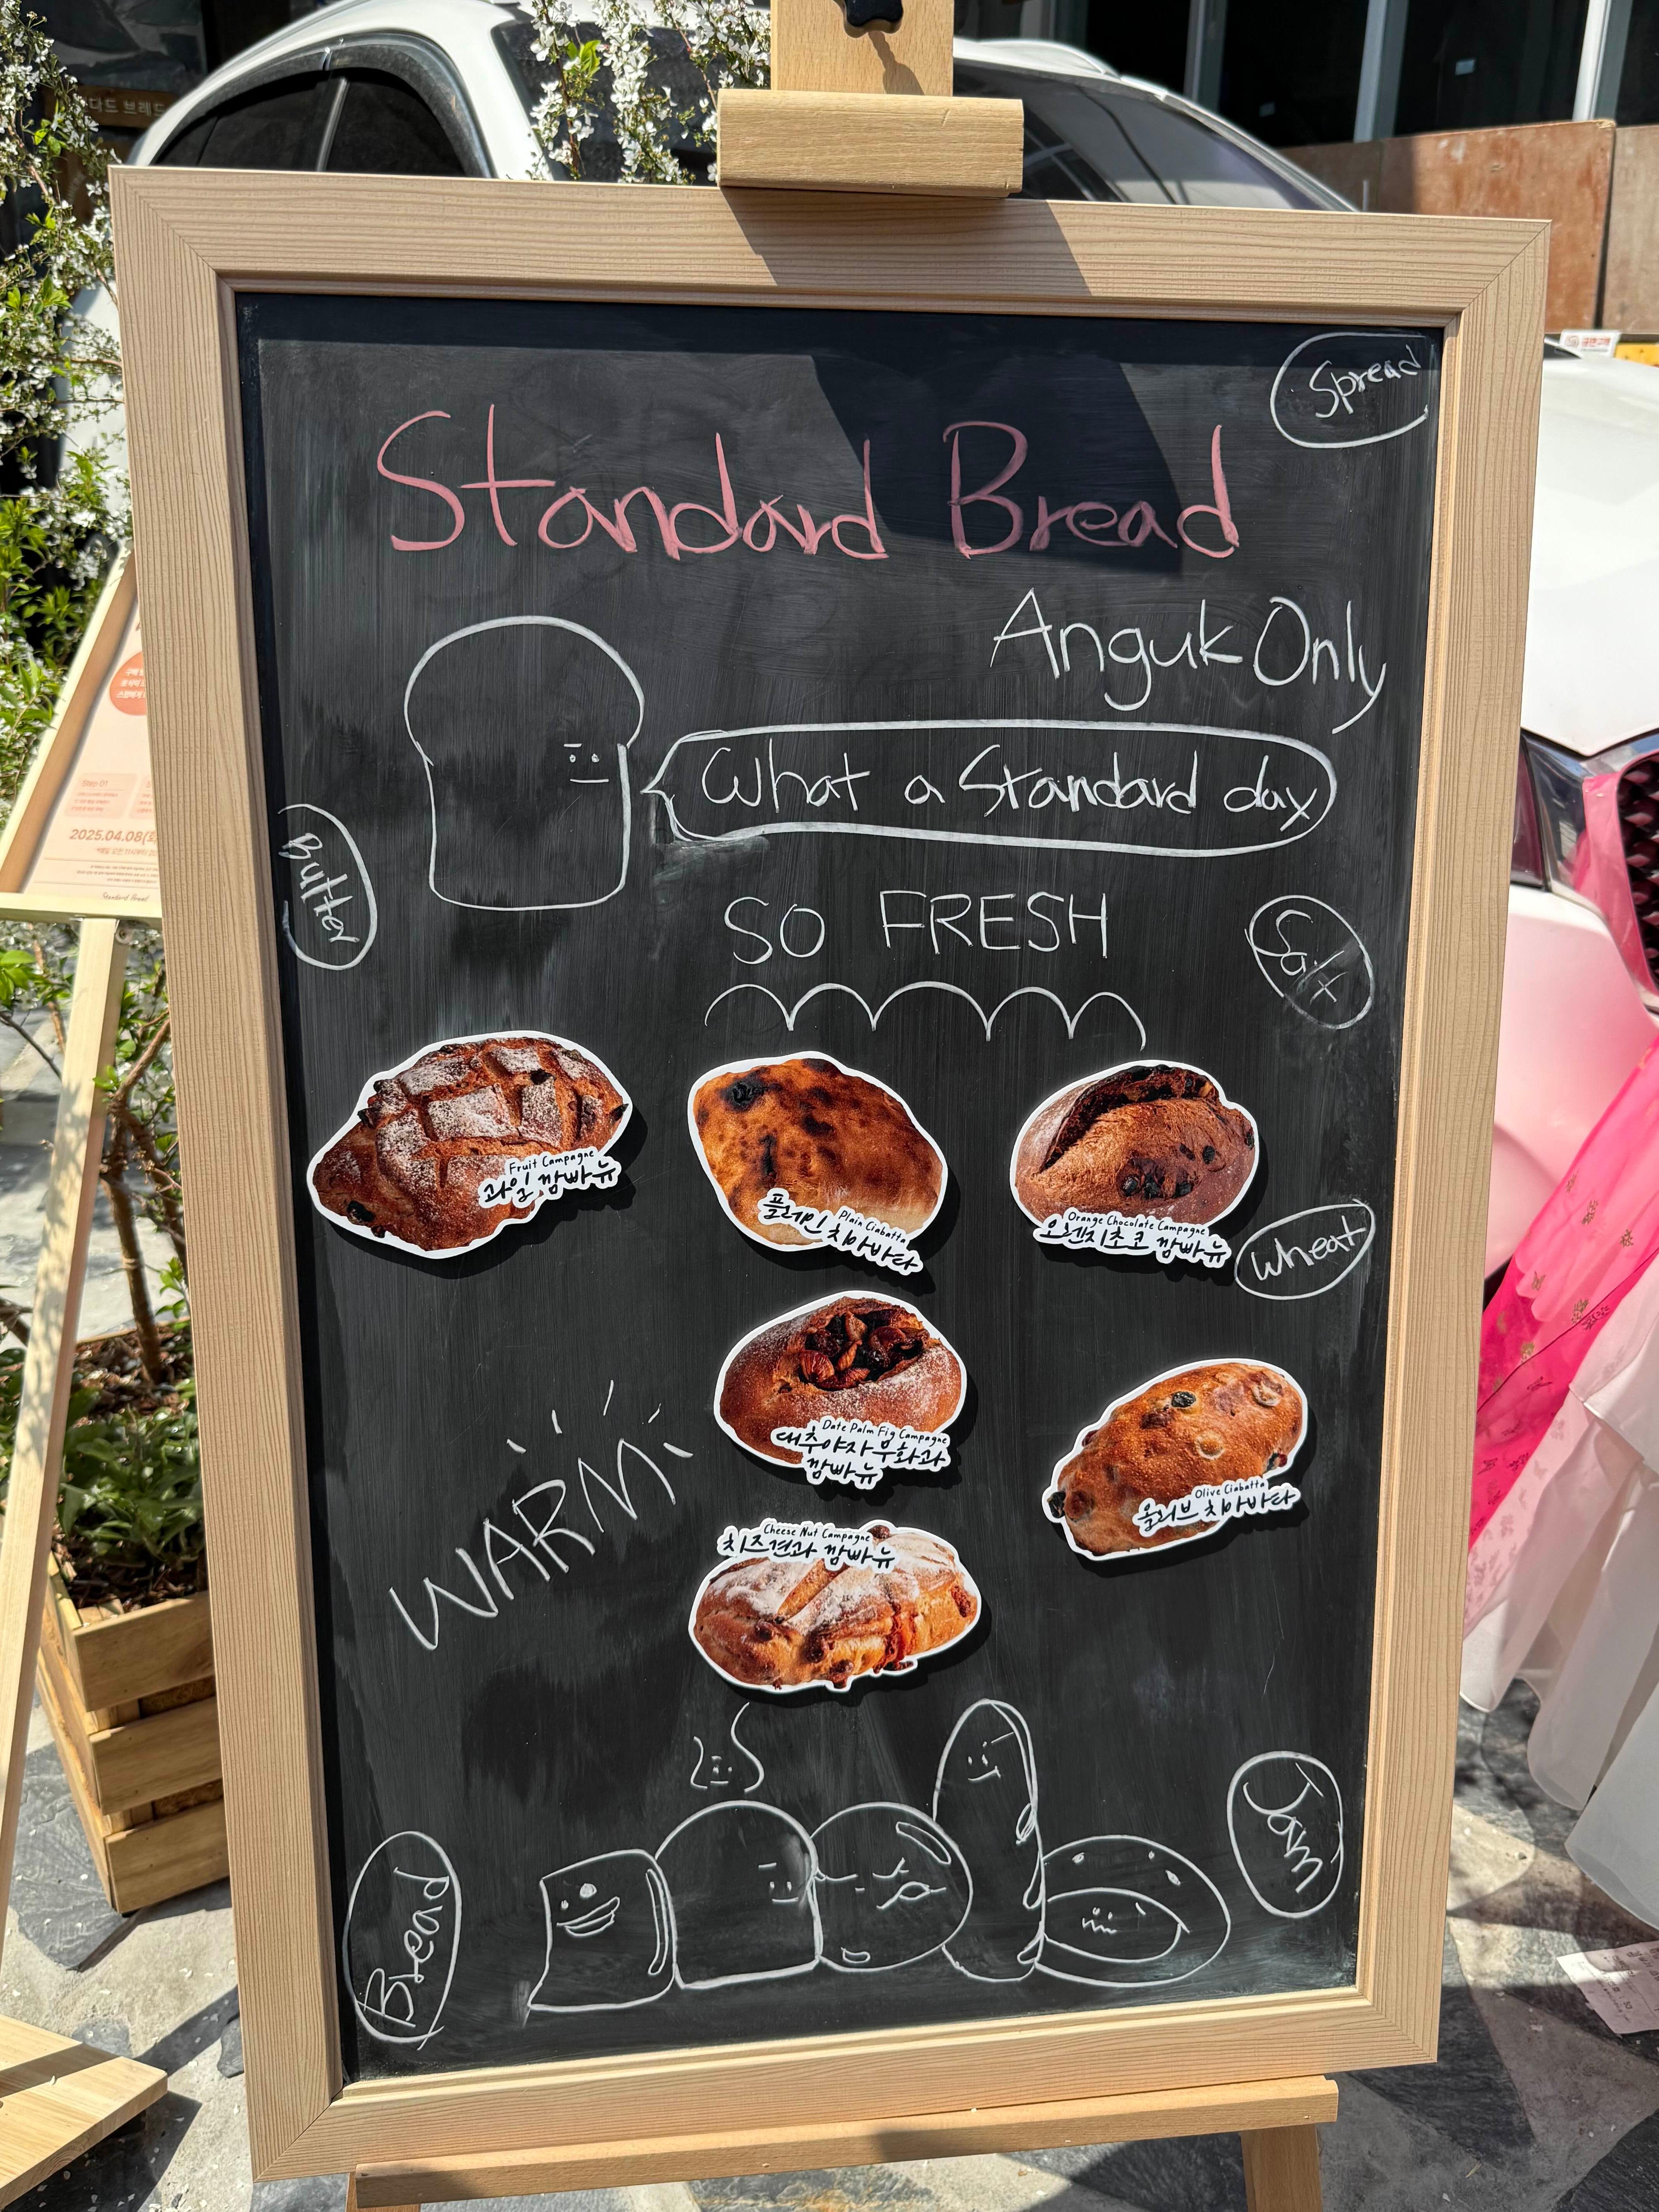 다드 브레드
Spread
Standard Bread
Anguk Only
What a Standard day
Butter
SO FRESH
Salt
Fruit Campagne
과일 깜빠뉴
Plain Ciabatta
플레인 치아바타
Orange Chocolate Campagne
오렌지초코 깜빠뉴
Wheat
Date Palm Fig Campagne
대추야자 무화과
깜빠뉴
Olive Ciabatta
올리브 치아바타
WARM
Cheese Nut Campagne
치즈견과 깜빠뉴
Jam
Bread
Step 01
2025.04.08(화
Standard Bread